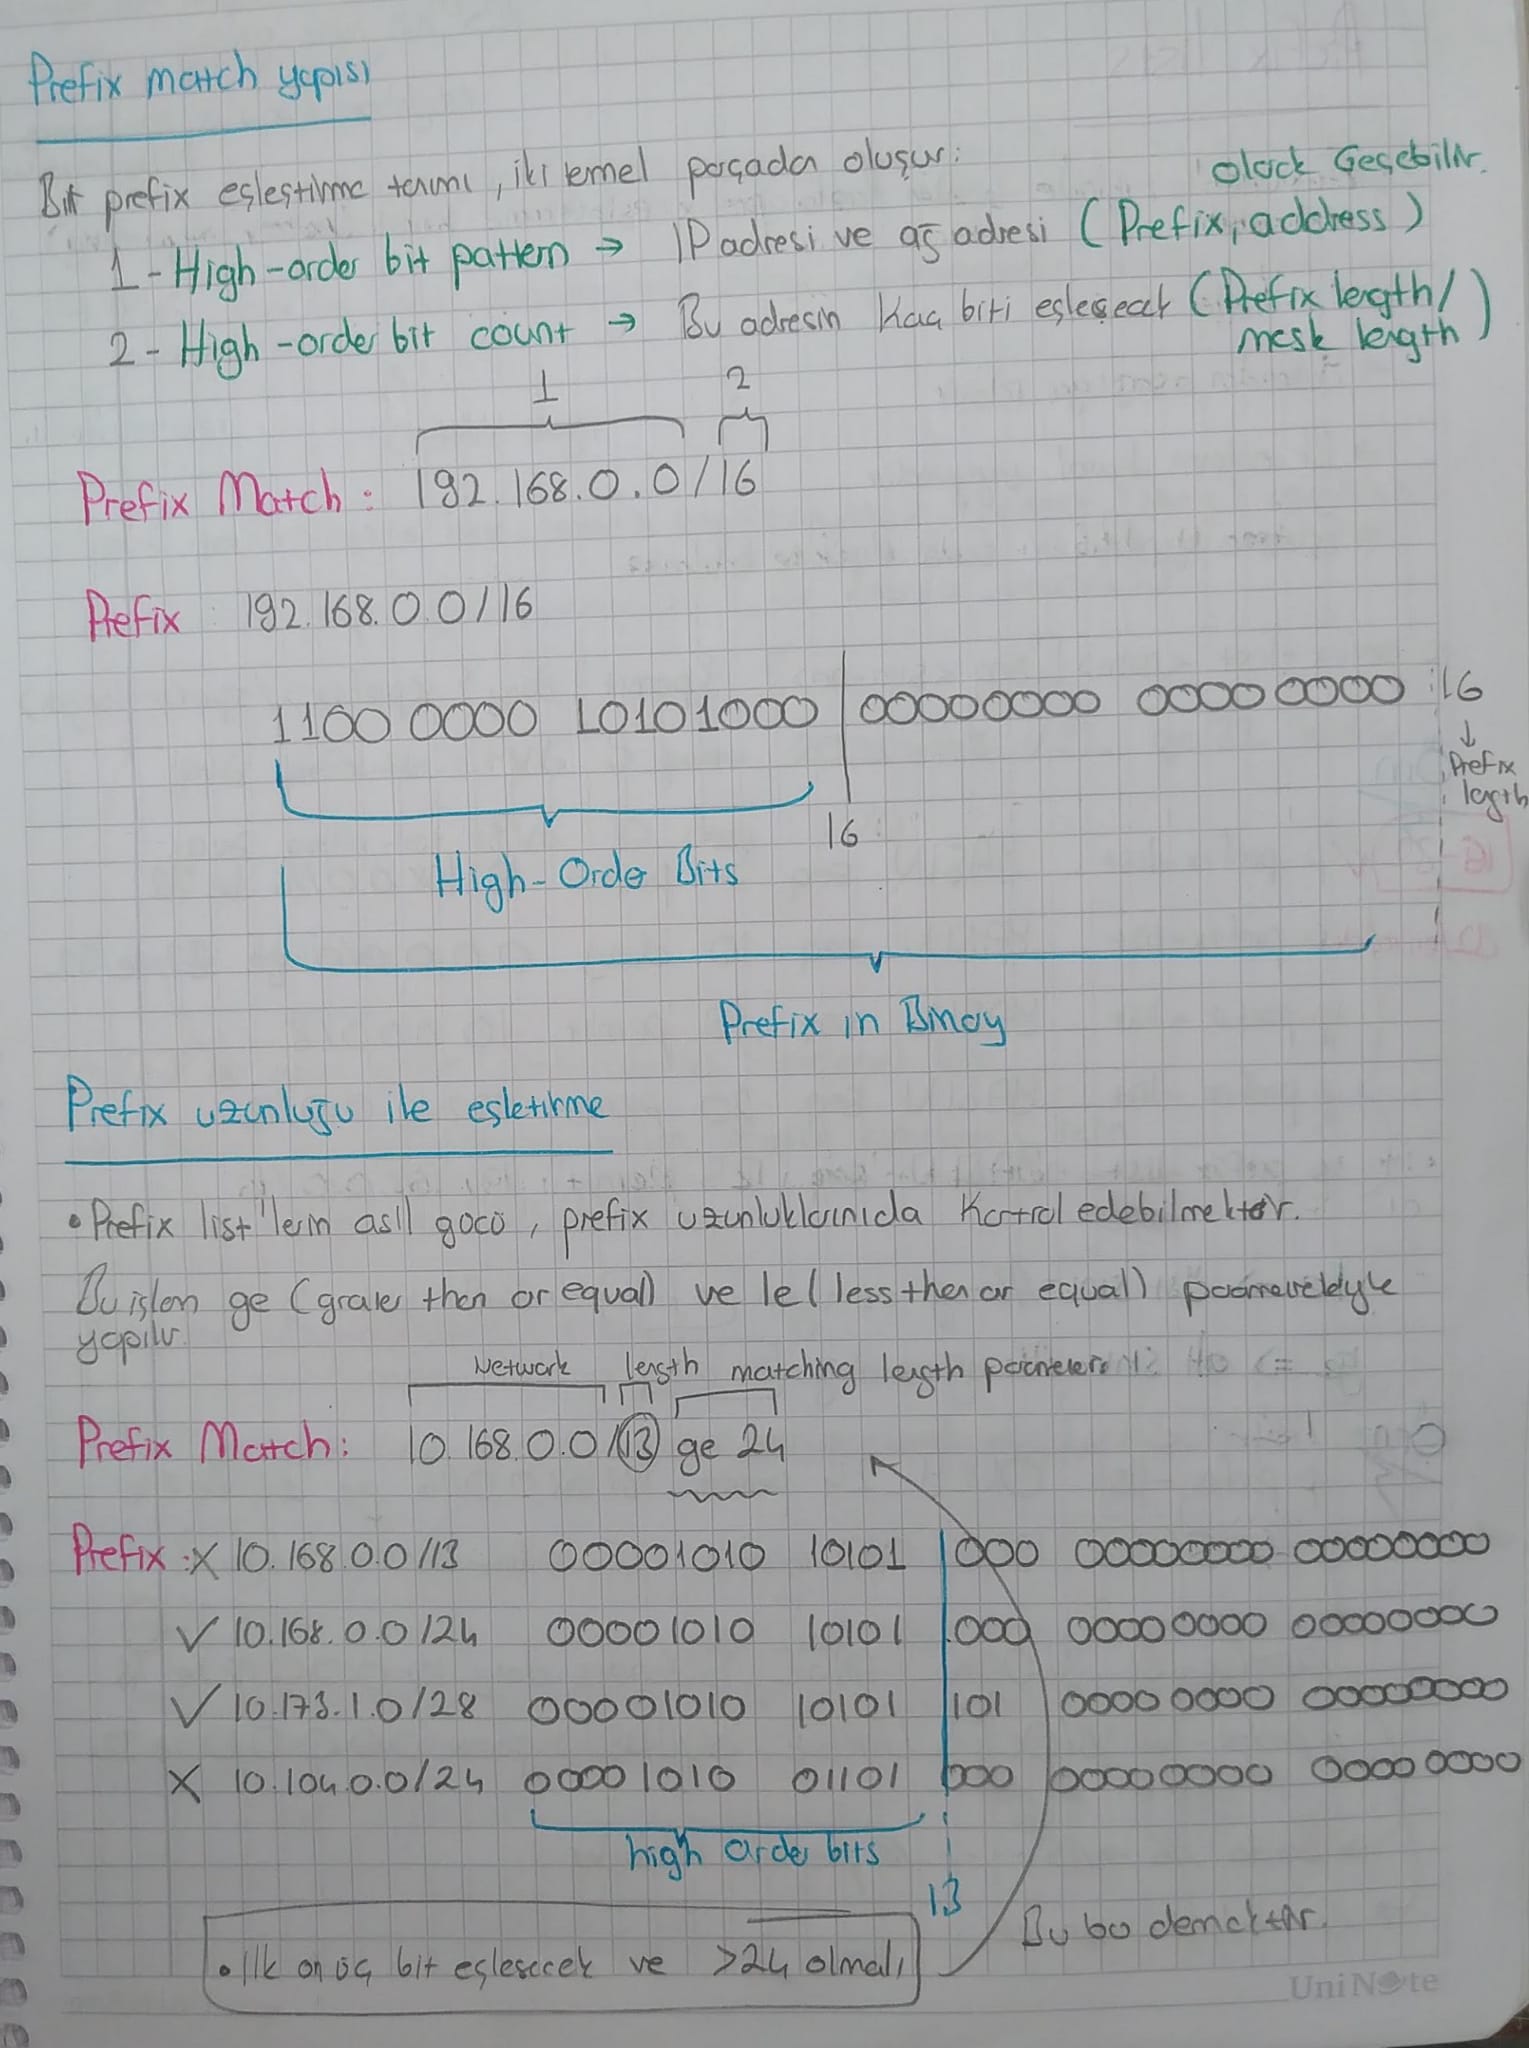 Prefix match yapısı
Bir prefix eşleştirme tanımı, iki temel parçadan oluşur:
olarak Geçebilir.
1 - High-order bit pattern → IP adresi ve ağ adresi (Prefix, address)
2 - High-order bit count → Bu adresin kaç biti eşleşecek (Prefix length/
mask length)
1 2
Prefix Match: 192.168.0.0/16
Prefix 192.168.0.0/16
1100 0000 10101000 | 00000000 0000 0000 16
↓
Prefix
length
16
High-Order Bits
Prefix in Binary
Prefix uzunluğu ile eşletirme
• Prefix list'lerin asıl gücü, prefix uzunluklarınıda kontrol edebilmektir.
Bu işlem ge (grater then or equal) ve le (less then or equal) parametreleriyle
yapılır.
Network length matching length parameters
Prefix Match: 10.168.0.0/13 ge 24
Prefix: X 10.168.0.0/13 00001010 10101 | 000 00000000 00000000
✓ 10.168.0.0/24 00001010 10101 | 000 00000000 00000000
✓ 10.173.1.0/28 00001010 10101 | 101 00000000 00000000
X 10.104.0.0/24 00001010 01101 | 000 00000000 00000000
high order bits
13
Bu bu demektir.
• İlk on üç bit eşleşecek ve >24 olmalı
UniNote